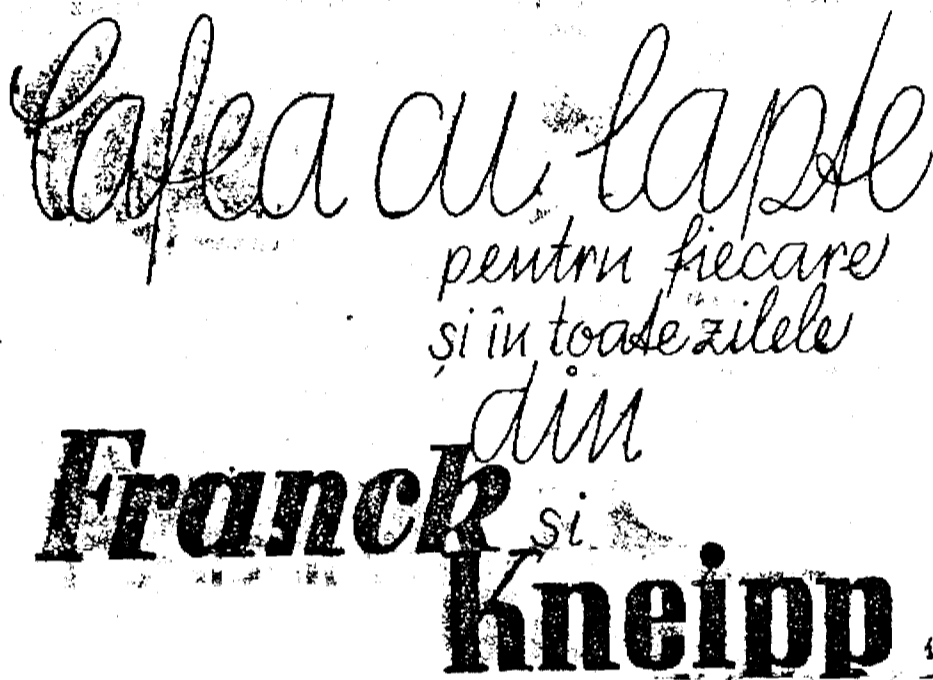 Cafea cu lapte
pentru fiecare
și în toate zilele
din
Franck
și
Kneipp